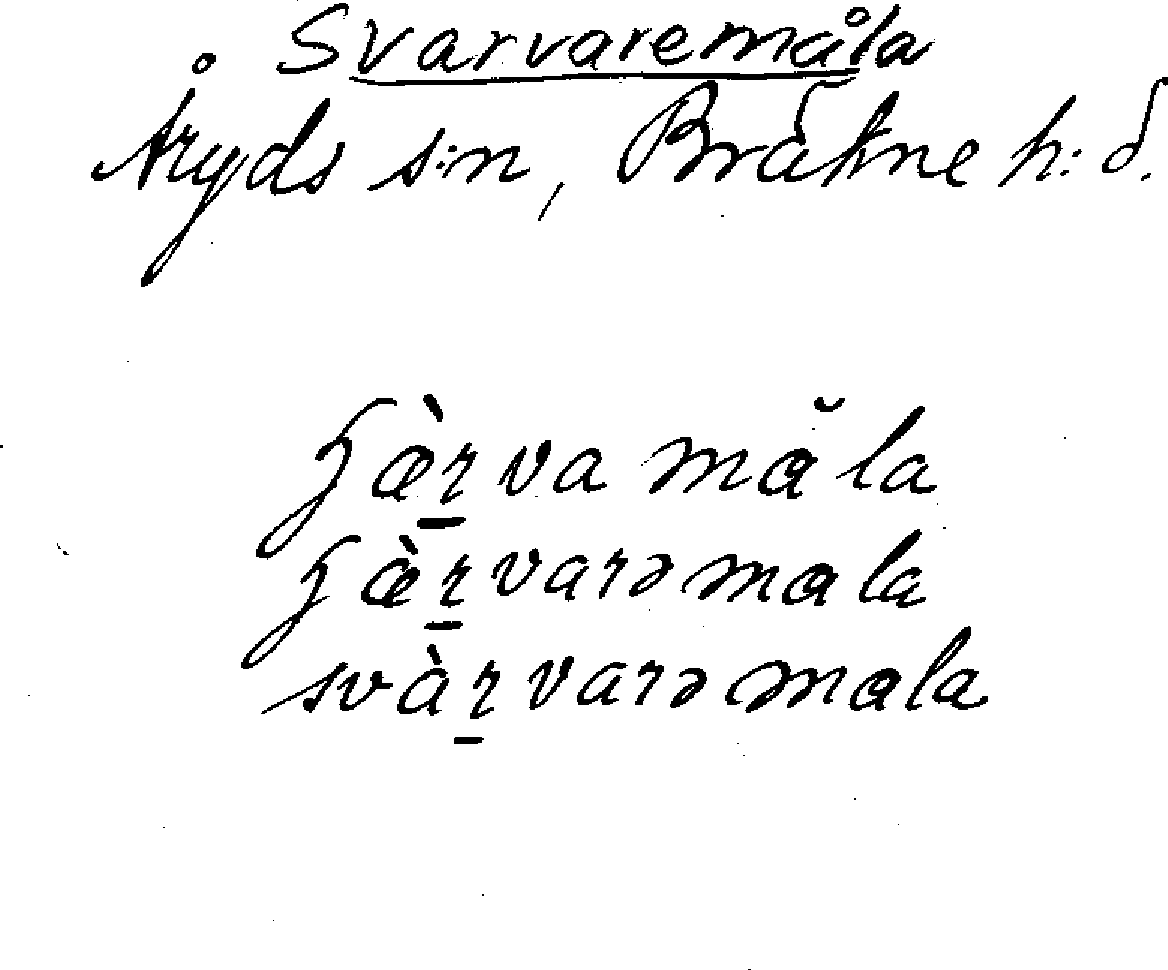 Svarvaremåla
Åryds s:n, Bräkne h:d.
ꜧæ̀r̠va måla
ꜧæ̀r̠varəmåla
svàr̠varəmala